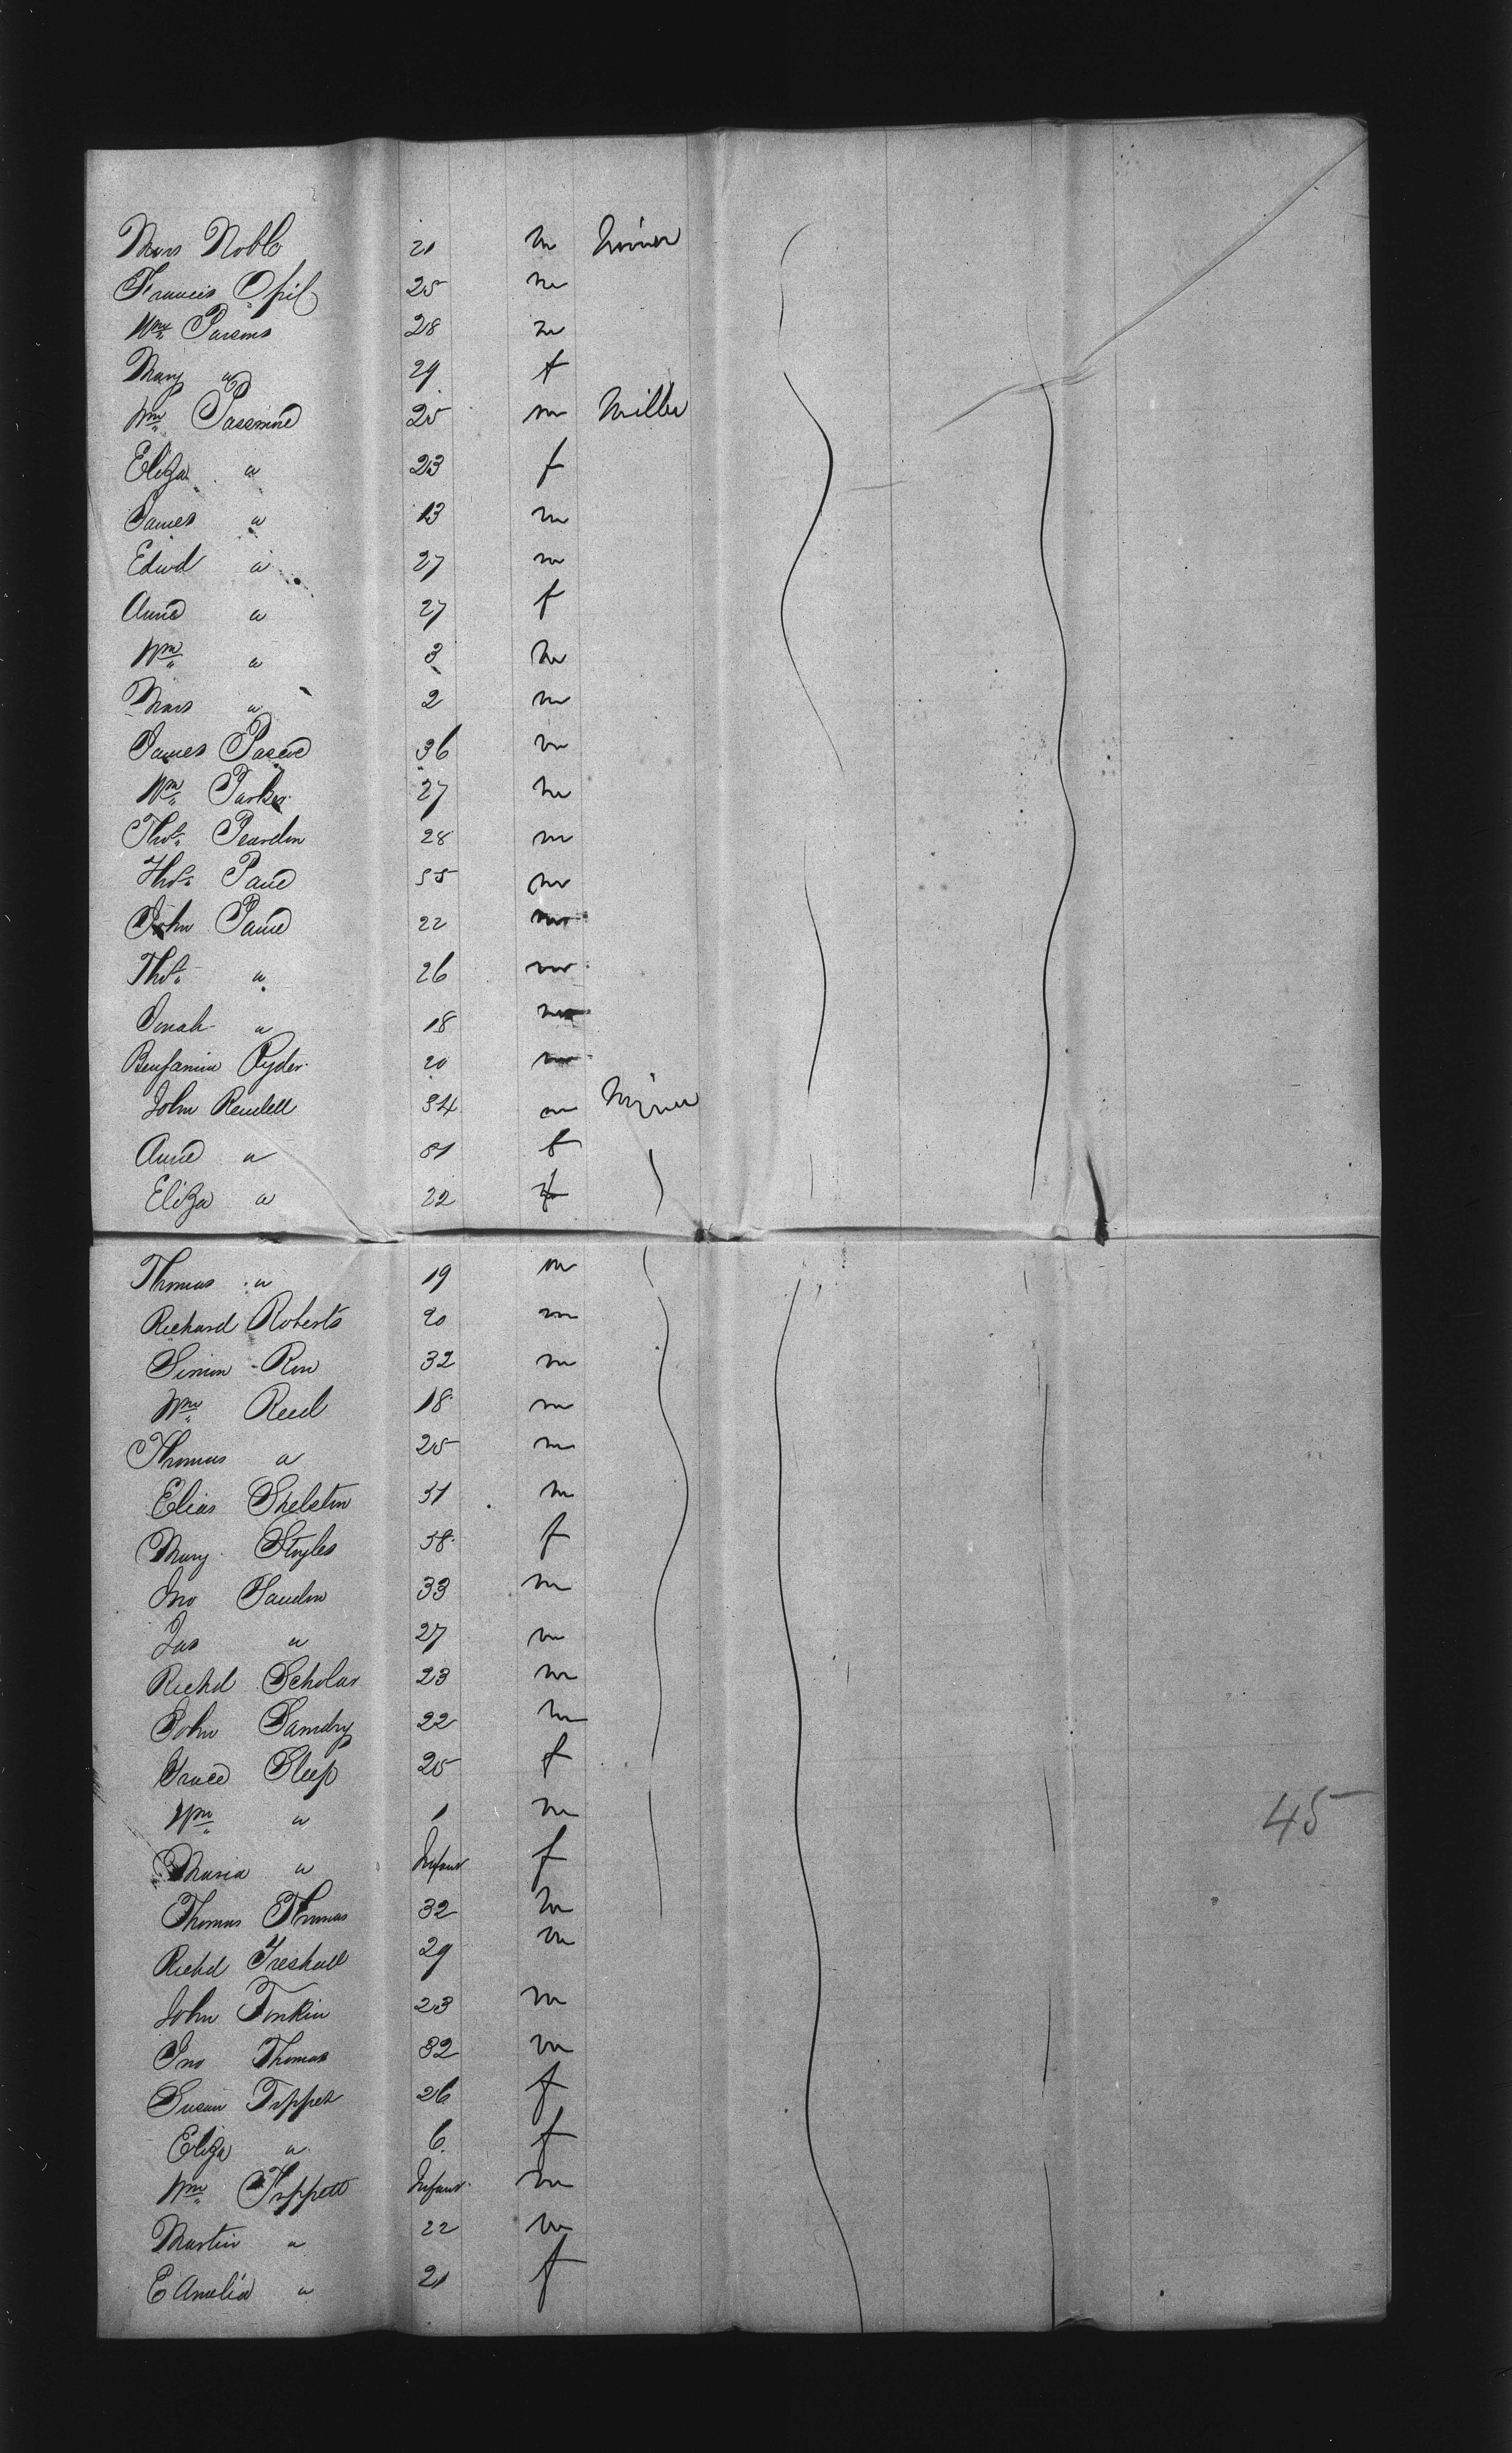 Mars Noble 21 m Miner
Francis Opil 25 m
Wm Parsons 28 m
Mary " 29 f
Wm Passmore 25 m Miller
Eliza " 23 f
James " 13 m
Edwd " 27 m
Anne " 27 f
Wm " 3 m
Mars " 2 m
James Pascoe 36 m
Wm Parker 27 m
Thos Peardon 28 m
Thos Paul 55 m
John Paul 22 m
Thos " 26 m
Jonah " 18 m
Benjamin Ryder 20 m
John Rendell 54 m Miner
Anne " 51 f
Eliza " 22 f
Thomas " 19 m
Richard Roberts 20 m
Simon Row 32 m
Wm Reed 18 m
Thomas " 25 m
Elias Skelston 51 m
Mary Styles 58 f
Jno Saudon 33 m
Jas " 27 m
Richd Scholar 23 m
John Sandry 22 m
Grace Sleep 25 f
Wm " 1 m
Maria " Infant f
Thomas Thomas 32 m
Richd Treskull 29 m
John Tonkin 23 m
Jno Thomas 32 m
Susan Tippet 26 f
Eliza " 6 f
Wm Tippett Infant m
Martin " 22 m
E Amelia " 21 f
45